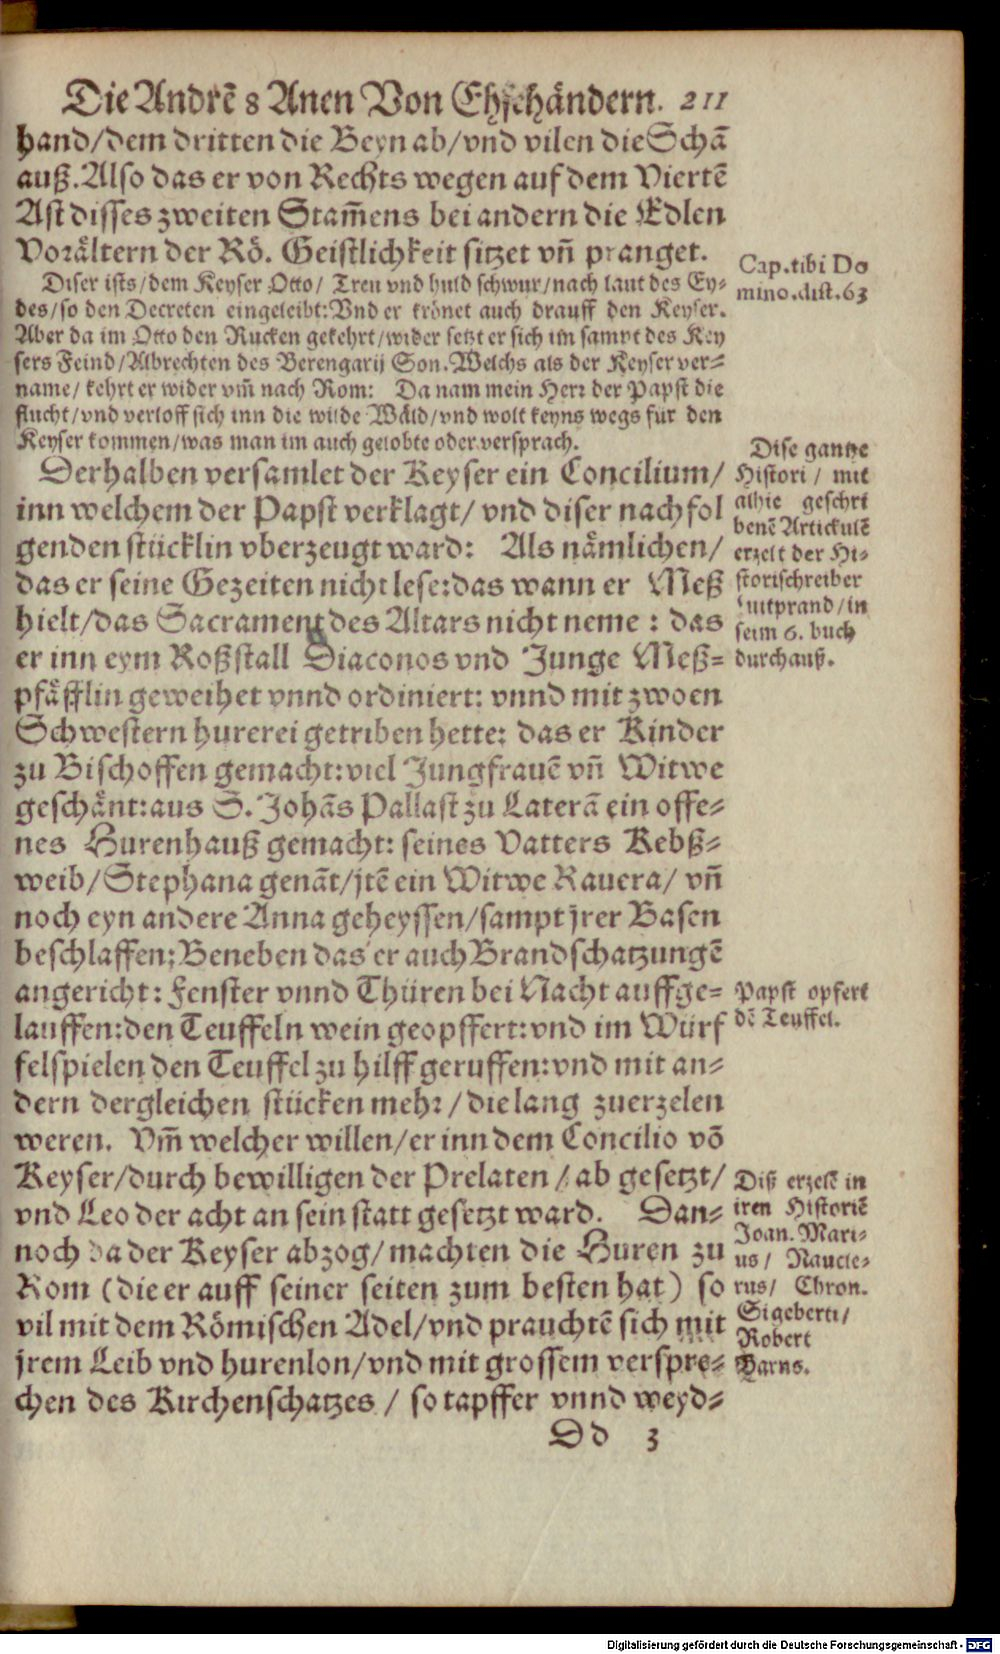 Die Andrẽ 8 Anen Von Ehschändern. 211
hand/dem dritten die Beyn ab/vnd vilen die Schã
auß. Also das er von Rechts wegen auf dem Viertẽ
Ast disses zweiten Stam̃ens bei andern die Edlen
Vorältern der Rö. Geistlichkeit sitzet vñ pranget.
Diser ists/dem Keyser Otto/ Treu vnd huld schwur/nach laut des Ey-
des/so den Decreten eingeleibt: Vnd er krönet auch drauff den Keyser.
Aber da im Otto den Rucken gekehrt/wider setzt er sich im sampt des Key
sers Feind/Albrechten des Berengarij Son. Welchs als der Keyser ver-
name/kehrt er wider vm̃ nach Rom: Da nam mein Herr der Papst die
flucht/vnd verloff sich inn die wilde Wäld/vnd wolt keyns wegs für den
Keyser kommen/was man im auch gelobte oder versprach.
Derhalben versamlet der Keyser ein Concilium/
inn welchem der Papst verklagt/ vnd diser nachfol
genden stücklin vberzeugt ward: Als nämlichen/
das er seine Gezeiten nicht lese: das wann er Meß
hielt/das Sacrament des Altars nicht neme: das
er inn eym Roßstall Diaconos vnd Junge Meß-
pfäfflin geweihet vnnd ordiniert: vnnd mit zwoen
Schwestern hurerei getriben hette: das er Kinder
zu Bischoffen gemacht: viel Jungfrauẽ vñ Witwe
geschänt: aus S. Johãs Pallast zu Laterã ein offe-
nes Hurenhauß gemacht: seines Vatters Kebß-
weib/Stephana genãt/jtẽ ein Witwe Rauera/ vñ
noch eyn andere Anna geheyssen/sampt jrer Basen
beschlaffen: Beneben das er auch Brandschatzungẽ
angericht: Fenster vnnd Thüren bei Nacht auffge-
lauffen: den Teuffeln wein geopffert: vnd im Würf
felspielen den Teuffel zu hilff geruffen: vnd mit an-
dern dergleichen stücken mehr/die lang zuerzelen
weren. Vm̃ welcher willen/er inn dem Concilio võ
Keyser/durch bewilligen der Prelaten/ab gesetzt/
vnd Leo der acht an sein statt gesetzt ward. Dan-
noch da der Keyser abzog/machten die Huren zu
Rom (die er auff seiner seiten zum besten hat) so
vil mit dem Römischen Adel/vnd prauchtẽ sich mit
jrem Leib vnd hurenlon/vnd mit grossem verspre-
chen des Kirchenschatzes/ so tapffer vnnd weyd-
Dd 3
Cap. tibi Do
mino. dist. 63
Dise gantze
Histori/ mit
alhie geschri
benẽ Artickulẽ
erzelt der Hi-
storischreiber
Luitprand/in
seim 6. buch
durchauß.
Papst opfert
dẽ Teuffel.
Diß erzelẽ in
iren Historiẽ
Joan. Mari-
us/ Naucle-
rus/ Chron.
Sigeberti/
Robert
Barns.
Digitalisierung gefördert durch die Deutsche Forschungsgemeinschaft - DFG